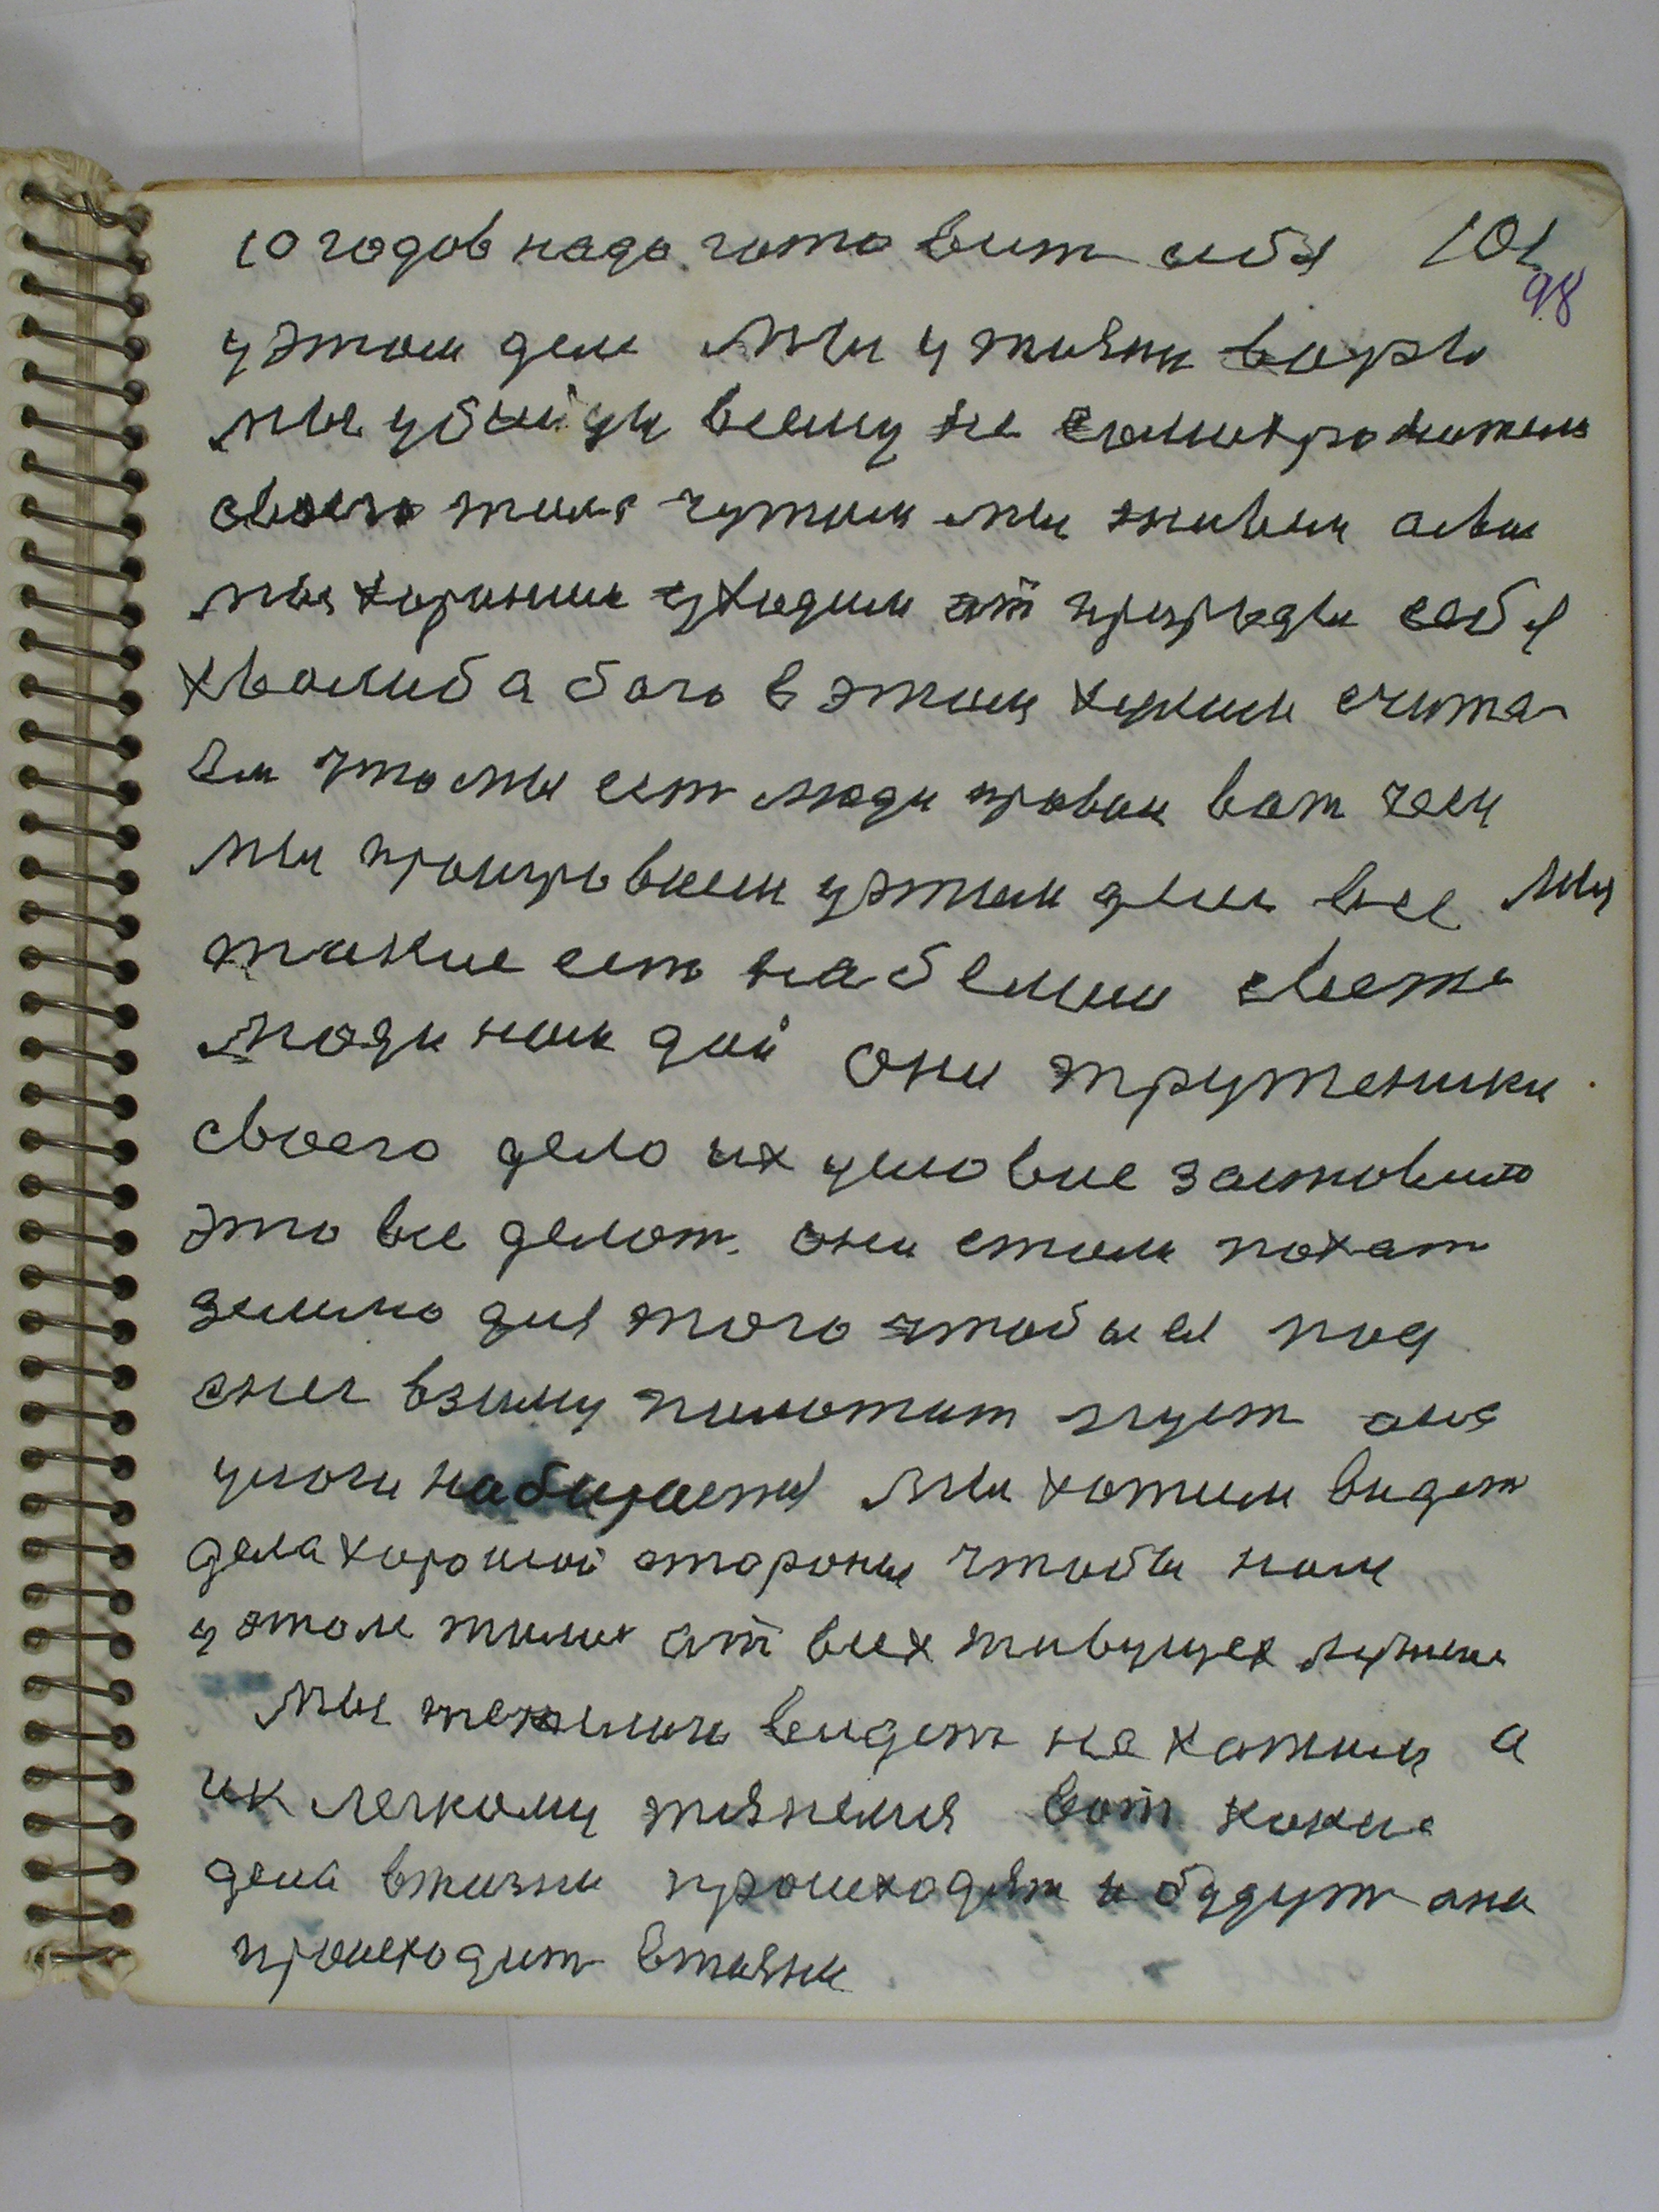 10 годов надо готовит себя 101
98
у этом деле Мы у жизни воры
мы убийцы всему не
своего тела чутким мы живем
мы хороним уходим от природы себя
хвалим а бога в этом хулим счита-
ем что мы ест люди правы вот чем
мы проигрываем у этом деле все Мы
такие ест на белом свете
люди нам дай они труженики
своего дело их условие заставило
это все делат. они стали пахат
землю для того чтобы ея под
снег взиму лежит она
влаги набирается Мы хотим видет
дела хорошой стороны чтобы нам
у этом жилос от всех живущех лутше
Мы тежелого видет не хотим а
ик легкому вот какие
дела вжизни происходят и будут они
происходит вжизни